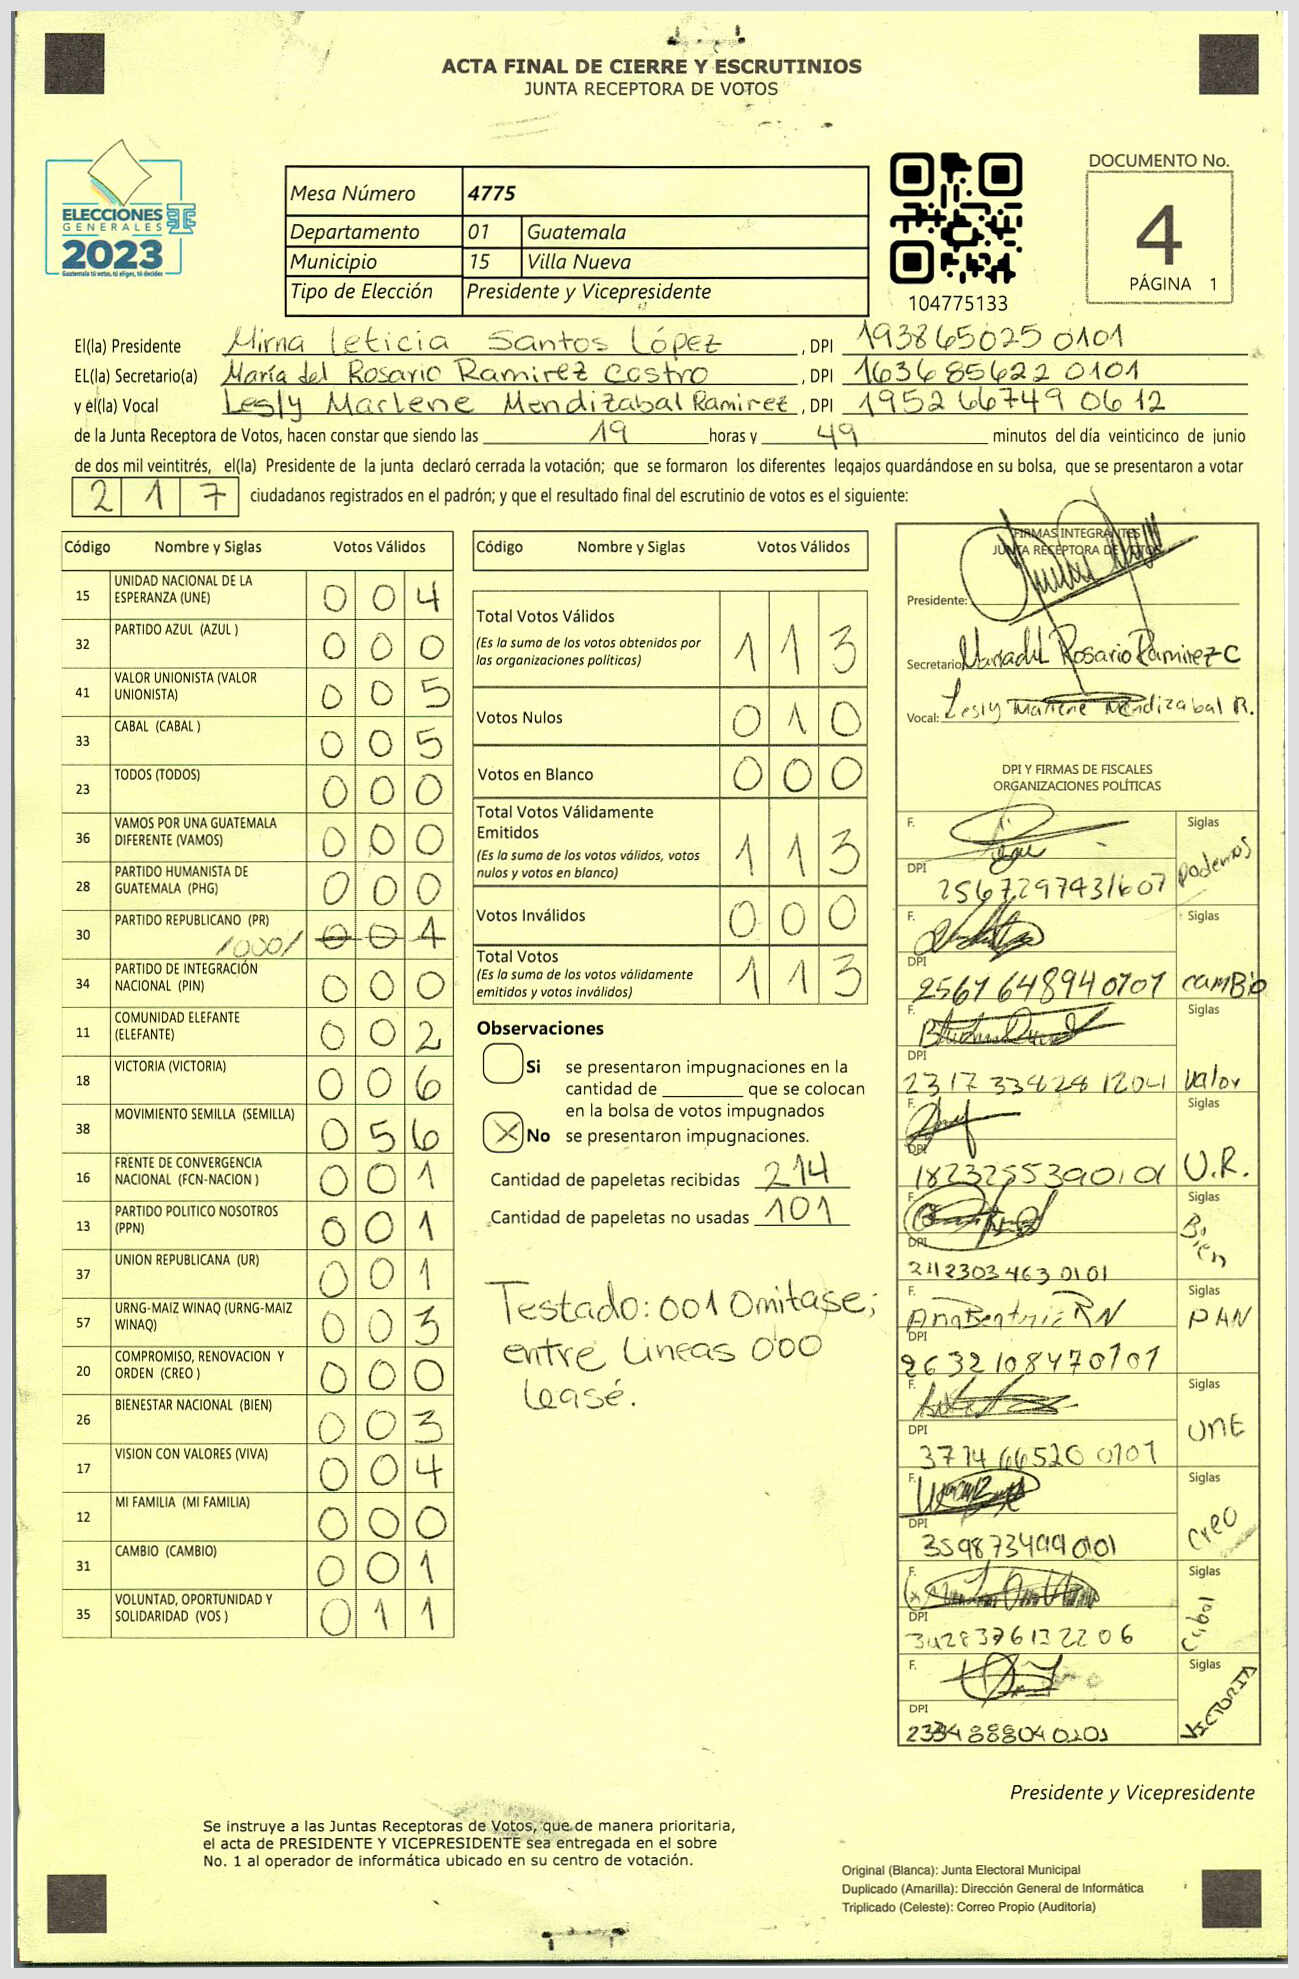 ACTA FINAL DE CIERRE Y ESCRUTINIOS
JUNTA RECEPTORA DE VOTOS
ELECCIONES
GENERALES
2023
Guatemala tú votas, tú eliges, tú decides
Mesa Número 4775
Departamento 01 Guatemala
Municipio 15 Villa Nueva
Tipo de Elección Presidente y Vicepresidente
104775133
DOCUMENTO No.
4
PÁGINA 1
El(la) Presidente Mirna Leticia Santos López, DPI 193865025 0101
EL(la) Secretario(a) María del Rosario Ramirez Castro, DPI 163685622 0101
y el(la) Vocal Lesly Marlene Mendizabal Ramirez, DPI 195266749 0612
de la Junta Receptora de Votos, hacen constar que siendo las 19 horas y 49 minutos del día veinticinco de junio
de dos mil veintitrés, el(la) Presidente de la junta declaró cerrada la votación; que se formaron los diferentes legajos guardándose en su bolsa, que se presentaron a votar
217 ciudadanos registrados en el padrón; y que el resultado final del escrutinio de votos es el siguiente:
Código Nombre y Siglas Votos Válidos
15 UNIDAD NACIONAL DE LA ESPERANZA (UNE) 0 0 4
32 PARTIDO AZUL (AZUL ) 0 0 0
41 VALOR UNIONISTA (VALOR UNIONISTA) 0 0 5
33 CABAL (CABAL ) 0 0 5
23 TODOS (TODOS) 0 0 0
36 VAMOS POR UNA GUATEMALA DIFERENTE (VAMOS) 0 0 0
28 PARTIDO HUMANISTA DE GUATEMALA (PHG) 0 0 0
30 PARTIDO REPUBLICANO (PR) /000/ 0 0 1
34 PARTIDO DE INTEGRACIÓN NACIONAL (PIN) 0 0 0
11 COMUNIDAD ELEFANTE (ELEFANTE) 0 0 2
18 VICTORIA (VICTORIA) 0 0 6
38 MOVIMIENTO SEMILLA (SEMILLA) 0 5 6
16 FRENTE DE CONVERGENCIA NACIONAL (FCN-NACION ) 0 0 1
13 PARTIDO POLITICO NOSOTROS (PPN) 0 0 1
37 UNION REPUBLICANA (UR) 0 0 1
57 URNG-MAIZ WINAQ (URNG-MAIZ WINAQ) 0 0 3
20 COMPROMISO, RENOVACION Y ORDEN (CREO ) 0 0 0
26 BIENESTAR NACIONAL (BIEN) 0 0 3
17 VISION CON VALORES (VIVA) 0 0 4
12 MI FAMILIA (MI FAMILIA) 0 0 0
31 CAMBIO (CAMBIO) 0 0 1
35 VOLUNTAD, OPORTUNIDAD Y SOLIDARIDAD (VOS ) 0 1 1
Código Nombre y Siglas Votos Válidos
Total Votos Válidos 1 1 3
(Es la suma de los votos obtenidos por
las organizaciones políticas)
Votos Nulos 0 1 0
Votos en Blanco 0 0 0
Total Votos Válidamente
Emitidos 1 1 3
(Es la suma de los votos válidos, votos
nulos y votos en blanco)
Votos Inválidos 0 0 0
Total Votos 1 1 3
(Es la suma de los votos válidamente
emitidos y votos inválidos)
Observaciones
Si se presentaron impugnaciones en la
cantidad de ________ que se colocan
en la bolsa de votos impugnados
X No se presentaron impugnaciones.
Cantidad de papeletas recibidas 214
Cantidad de papeletas no usadas 101
Testado: 001 Omitase;
entre Lineas 000
Leasé.
FIRMAS INTEGRANTES
JUNTA RECEPTORA DE VOTOS
Presidente:
Secretario: María del Rosario Ramirez C
Vocal: Lesly Marlene Mendizabal R.
DPI Y FIRMAS DE FISCALES
ORGANIZACIONES POLÍTICAS
F. Siglas Podemos
DPI 2567297431607
F. Siglas CAMBIO
DPI 2567648940101
F. Siglas Valor
DPI 2317334241204
F. Siglas U.R.
DPI 1823255390101
F. Siglas Bien
DPI 2112303463 0101
F. Ana Beatriz RN Siglas PAN
DPI 2632108470101
F. Siglas UNE
DPI 3774665200101
F. Siglas Creo
DPI 3598734990101
F. Siglas Cabal
DPI 3428376132206
F. Siglas VICTORIA
DPI 2334888040101
Presidente y Vicepresidente
Se instruye a las Juntas Receptoras de Votos, que de manera prioritaria,
el acta de PRESIDENTE Y VICEPRESIDENTE sea entregada en el sobre
No. 1 al operador de informática ubicado en su centro de votación.
Original (Blanca): Junta Electoral Municipal
Duplicado (Amarilla): Dirección General de Informática
Triplicado (Celeste): Correo Propio (Auditoría)